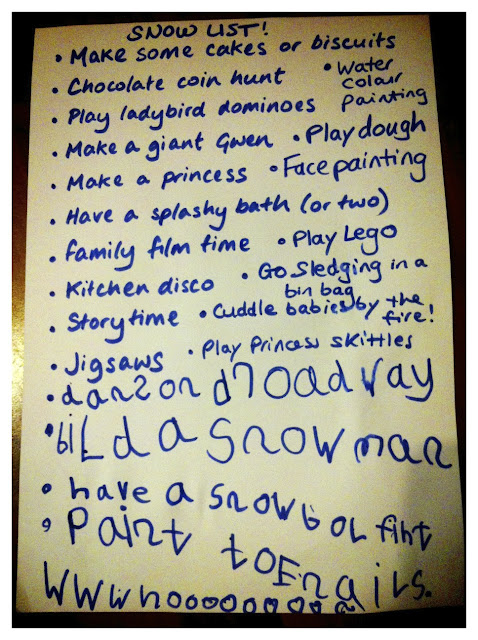 SNOW LIST!
• Make some cakes or biscuits
• Chocolate coin hunt
• Water
colour
painting
• Play ladybird dominoes
• Make a giant Gwen
• Play dough
• Make a princess
• Face painting
• Have a splashy bath (or two)
• Family film time
• Play Lego
• Kitchen disco
• Go Sledging in a
bin bag
• Story time
• Cuddle babies by the
fire!
• Jigsaws
• Play Princess Skittles
• dans on droadway
• biLd a snowman
• have a snowbol fiht
• Paint
toEnaiLs.
wwwhooooooooo